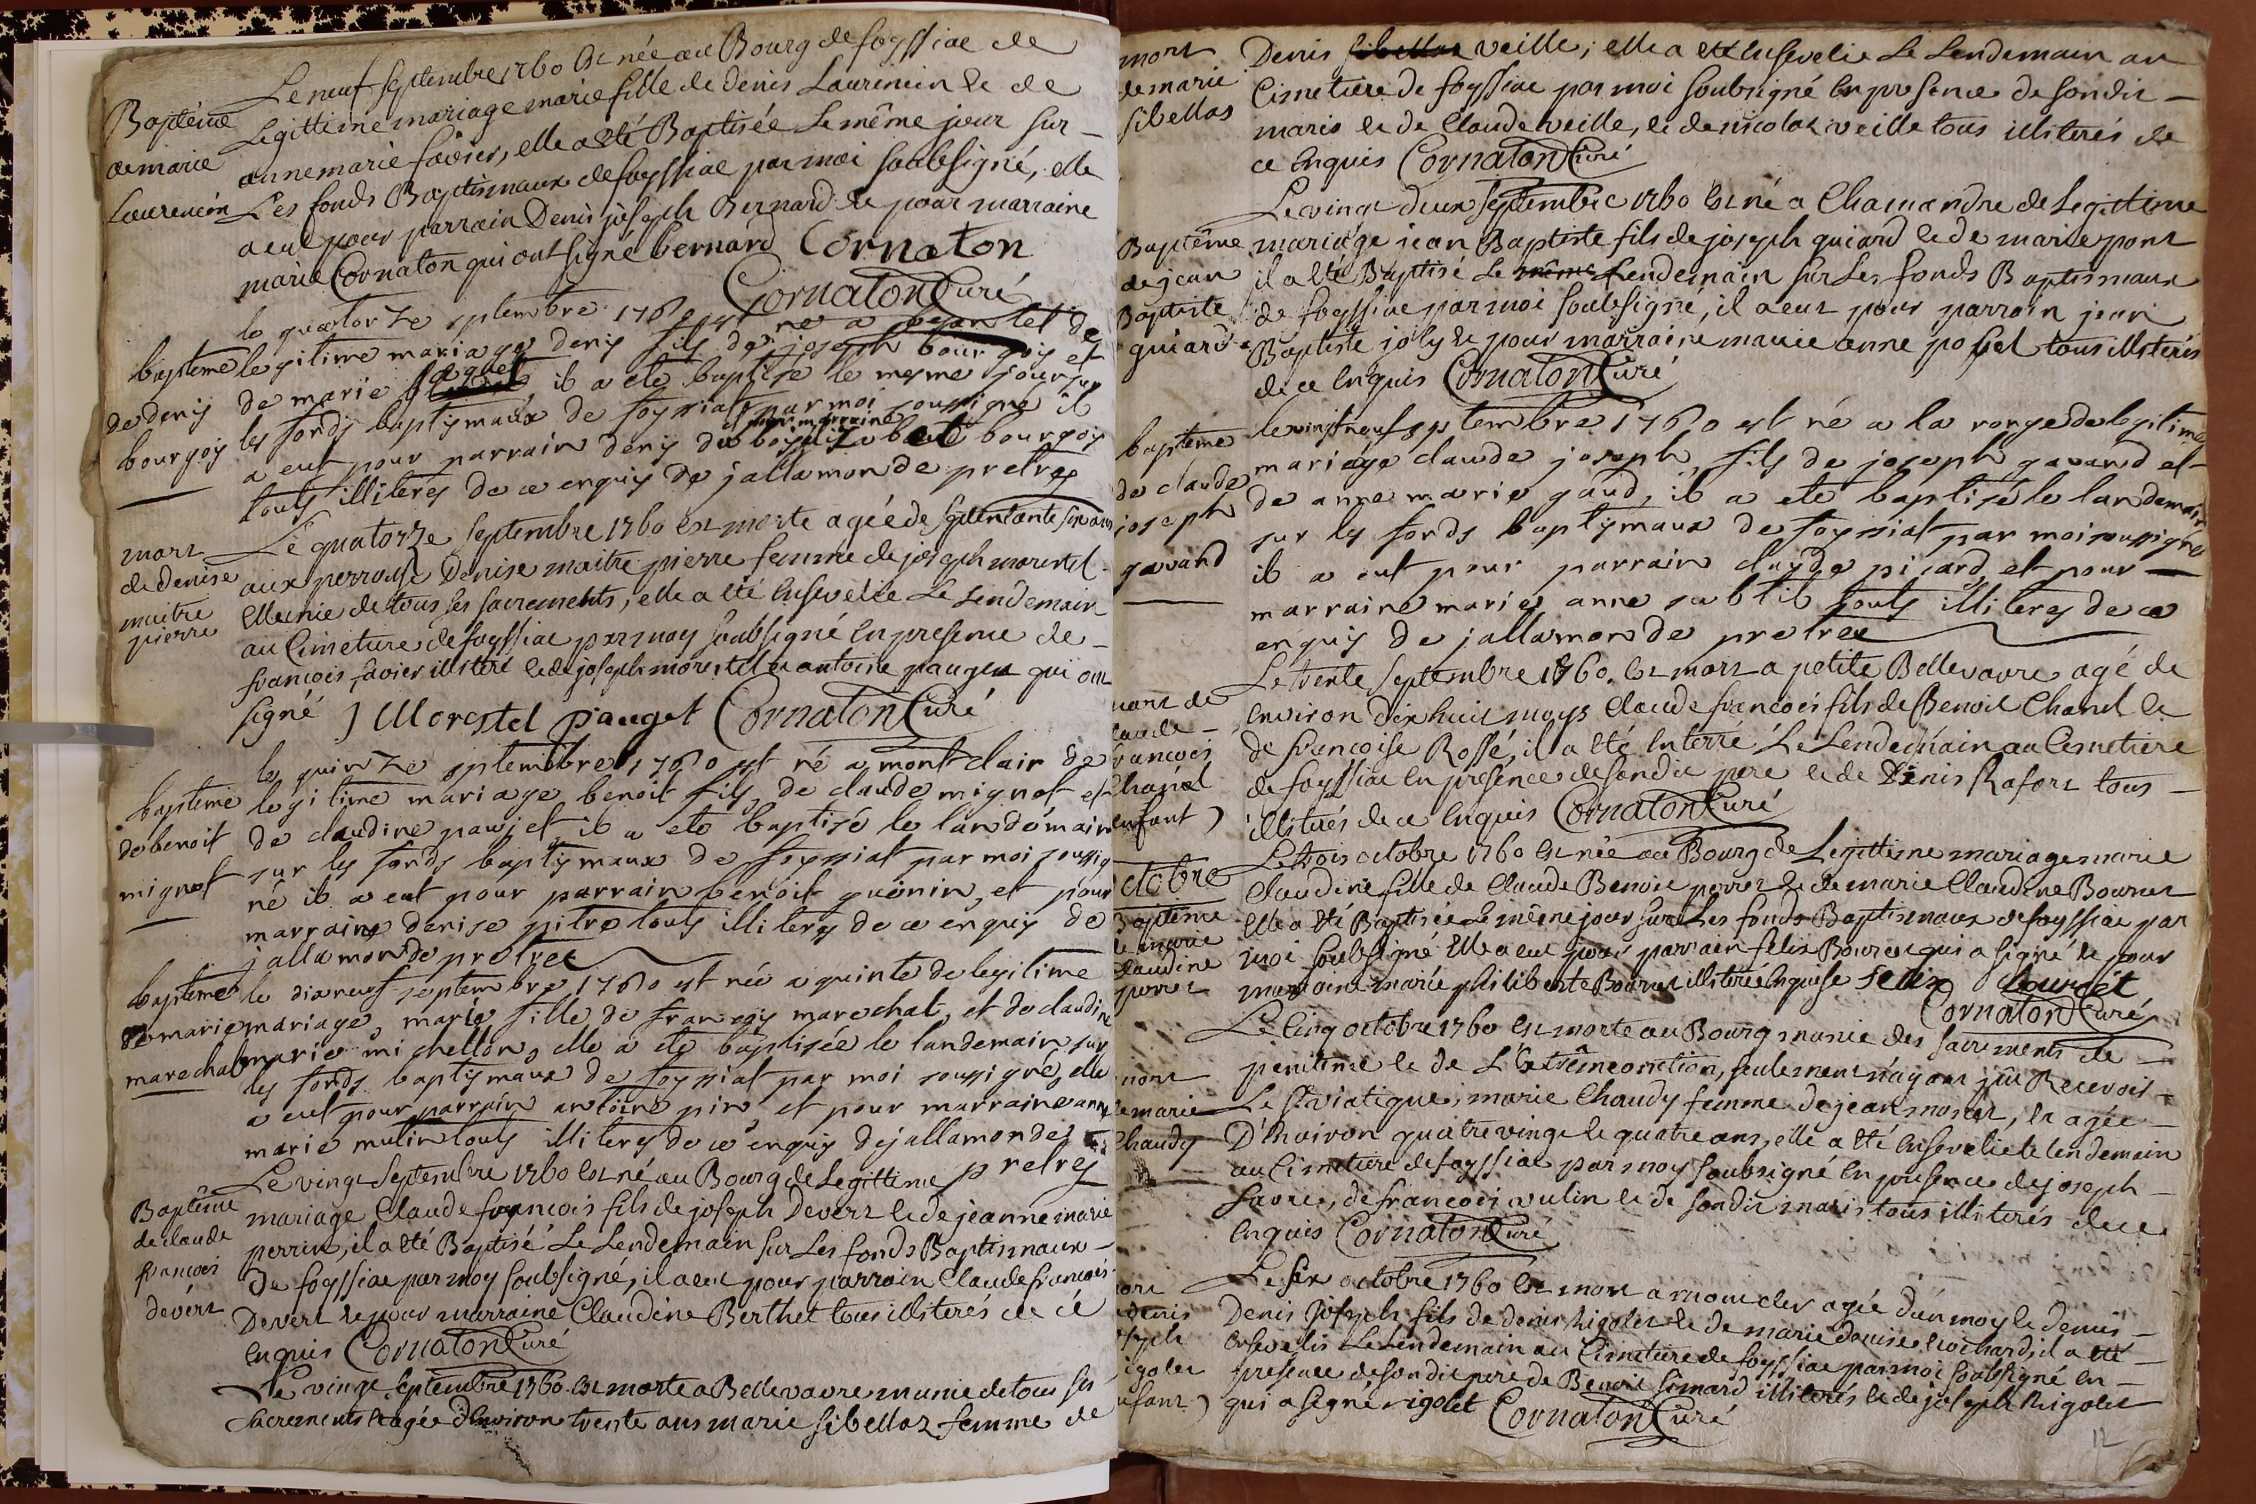 Baptême
de marie
Laurencin
Le neuf septembre 1760 est née au Bourg de foyssiac de
Legittime mariage marie fille de denis Laurencin et de
anne marie favier, elle a eté Baptisée Le même jour sur
Les fonds Baptismaux de foyssiac par moi soubsigné, elle
a eut pour parrain Denis joseph Bernard et pour marraine
marie Cornaton qui ont signé bernard Cornaton
Cornaton Curé
bapteme
de denis
bourgois
le quatorze septembre 1760 est né a
legitime mariage denis fils de joseph bourgois et
de marie il a ete baptise le mesme jour sur
les fonds baptismaux de foyssiat par moi soussigné il
a eut pour parrain denis du bourgois
touts illiteres de ce enquis de jallamonde pretre
mort
de denise
maitre
pierre
Le quatorze septembre 1760 est morte agée de septentante six ans
aux perrouse Denise maitre pierre femme de joseph morestel
Munie de tous ses sacrements, elle a eté Ensevelie Le Lendemain
au Cimetiere de foyssiac par moy soubsigné En presence de
françois favier illiteré et de joseph morestel et antoine pauget qui ont
signé J Morestel pauget Cornaton Curé
bapteme
de benoit
mignot
le quinze septembre 1760 est né a montclair de
legitime mariage benoit fils de claude mignot et
de claudine paujet il a ete baptisé le landemain
sur les fonds baptismaux de foyssiat par moi soussig
né il a eut pour parrain benoit guenin, et pour
marraine denise pitre touts illiteres de ce enquis de
jallamonde pretre
bapteme
de marie
marechal
le dixneuf septembre 1760 est née a quinte de legitime
mariage, marie fille de françois marechal, et de claudine
marie michellon, elle a ete baptisée le landemain sur
les fonds baptismaux de foyssiat par moi soussigné, elle
a eut pour parrain antoine pin et pour marraine anne
marie mulin touts illiteres de ce enquis de jallamonde
pretre
Baptême
de claude
françois
devert
Le vingt septembre 1760 est né au Bourg de Legittime
mariage Claude françois fils de joseph Devert et de jeanne marie
perrin, il a eté Baptisé Le Lendemain sur Les fonds Baptismaux
De foyssiac par moy soubsigné, il a eut pour parrain Claude françois
Devert et pour marraine Claudine Berthet tous illiterés de ce
enquis Cornaton Curé
Le vingt septembre 1760 est morte a Bellevavre munie de tous ses
sacrements et agée d'Environ trente ans marie sibellas femme de
mort
de marie
sibellas
Denis veille, elle a eté Ensevelie Le Lendemain au
Cimetiere de foyssiac par moi soubsigné En presence de sondit
maris et de Claude veille, et de nicolas veille tous illiterés de
ce Enquis Cornaton Curé
Baptême
de jean
Baptiste
guiard
Le vingt deux septembre 1760 est né a Chamandre de Legittime
mariage jean Baptiste fils de joseph guiard et de marie pont
il a eté Baptisé Le même Lendemain sur Les fonds Baptismaux
de foyssiac par moi soubsigné, il a eut pour parrain jean
Baptiste joly et pour marraine marie anne poset tous illiterés
de ce Enquis Cornaton Curé
bapteme
de claude
joseph
gavand
le vingt neuf septembre 1760 est né a la ronge de legitime
mariage claude joseph, fils de joseph gavand et
de anne marie gaud, il a ete baptisé le landemain
sur les fonds baptismaux de foyssiat par moi soussigné
il a eut pour parrain claude picard, et pour
marraine marie anne subtil touts illiteres de ce
enquis de jallamonde pretre
mort de
claude
françois
Chanel
enfant)
Le trente septembre 1760 est mort a petite Bellevavre agé de
Environ dix huit moys Claude françois fils de Benoit Chanel et
de françoise Rossé, il a eté Enterré Le Lendemain au Cimetiere
de foyssiac En présence de sondit pere et de Denis Rafort tous
illiterés de ce Enquis Cornaton Curé
octobre
Baptême
de marie
claudine
perret
Le trois octobre 1760 est née au Bourg de Legittime mariage marie
Claudine fille de Claude Benoit perret et de marie Claudine Bournet
Elle a eté Baptisée Le même jour sur Les fonds Baptismaux de foyssiac par
moi soubsigné Elle a eut pour parrain felix Bouret qui a signé et pour
marraine marie philiberte Bournet illiterée Enquise felix
Cornaton Curé
mort
de marie
Chaudy
Le Cinq octobre 1760 est morte au Bourg munie des sacrements de
penitence et de L'Extrême onction, seulement n'ayant pû Recevoir
Le St viatique, marie Chaudy femme de jean monet, et agée
D'Environ quatre vingt et quatre ans, elle a eté Ensevelie Le lendemain
au Cimetiere de foyssiac par moy soubsigné En presence de joseph
favre, de françois vulin et de sondit maris tous illiterés de ce
Enquis Cornaton Curé
mort
de denis
joseph
rigolet
enfant)
Le six octobre 1760 est mort a moncler agée d'un moy et demis
Denis joseph fils de denis Rigolet et de marie denise rochard, il a eté
Ensevelis Le Lendemain au Cimetiere de foyssiac par moi soubsigné En
presence de sondit pere de Benoit simard illiterés et de joseph Rigolet
qui a signé rigolet Cornaton Curé
12